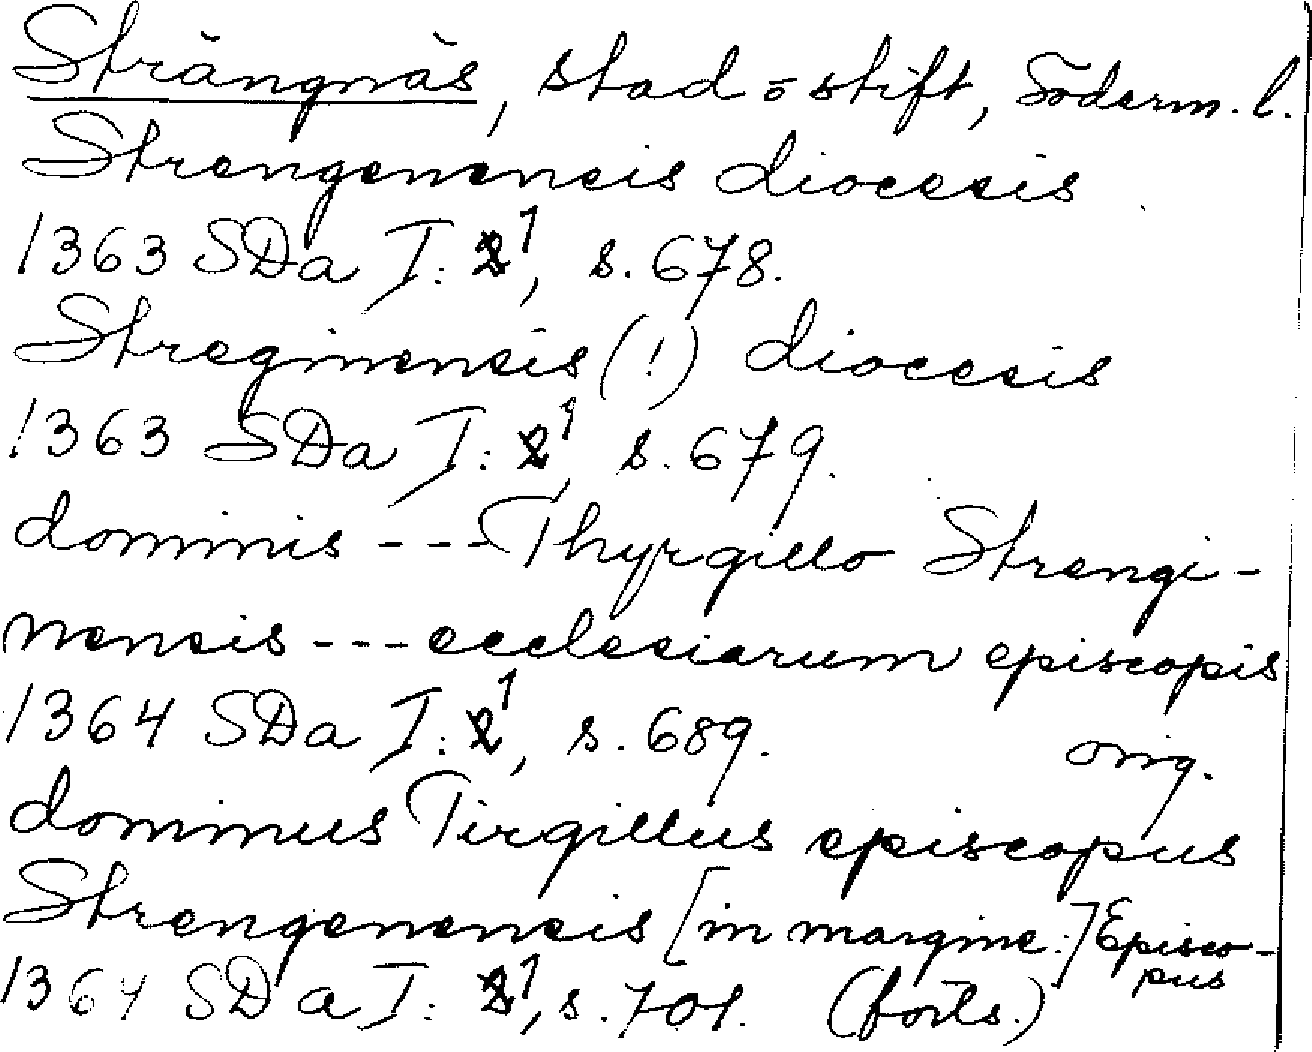 Strängnäs, stad o stift, Söderm. l.
Strengenensis diocesis
1363 SDa I: 1, s. 678.
Streginensis (!) diocesis
1363 SDa I: 1, s. 679.
dominis --- Thyrgillo Strengi-
nensis --- ecclesiarum episcopis
1364 SDa I: 1, s. 689. orig.
dominus Tirgillus episcopus
Strengenensis [in margine:] Episco-
pus
1364 SDa I: 1, s. 701. (forts.)